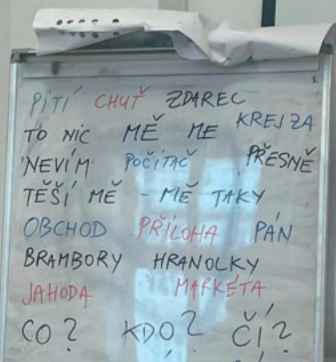 PITÍ CHUŤ ZDAREC
TO NIC MĚ ME KREJZA
NEVÍM POČÍTAČ PŘESNĚ
TĚŠÍ MĚ - MĚ TAKY
OBCHOD PŘÍLOHA PÁN
BRAMBORY HRANOLKY
JAHODA MARKÉTA
CO? KDO? ČÍ?